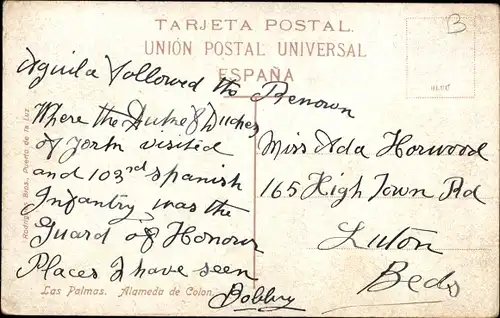 B
TARJETA POSTAL.
UNIÓN POSTAL UNIVERSAL
ESPAÑA
Aguila followed the Renown
Where the Duke & Duches
of York visited
and 103rd spanish
Infantry was the
Guard of Honour
Places I have seen
Bobby
Miss Ada Horwood
165 High Town Rd
Luton
Beds
Las Palmas. Alameda de Colon.
Rodrigues Bros. Puerto de la Luz